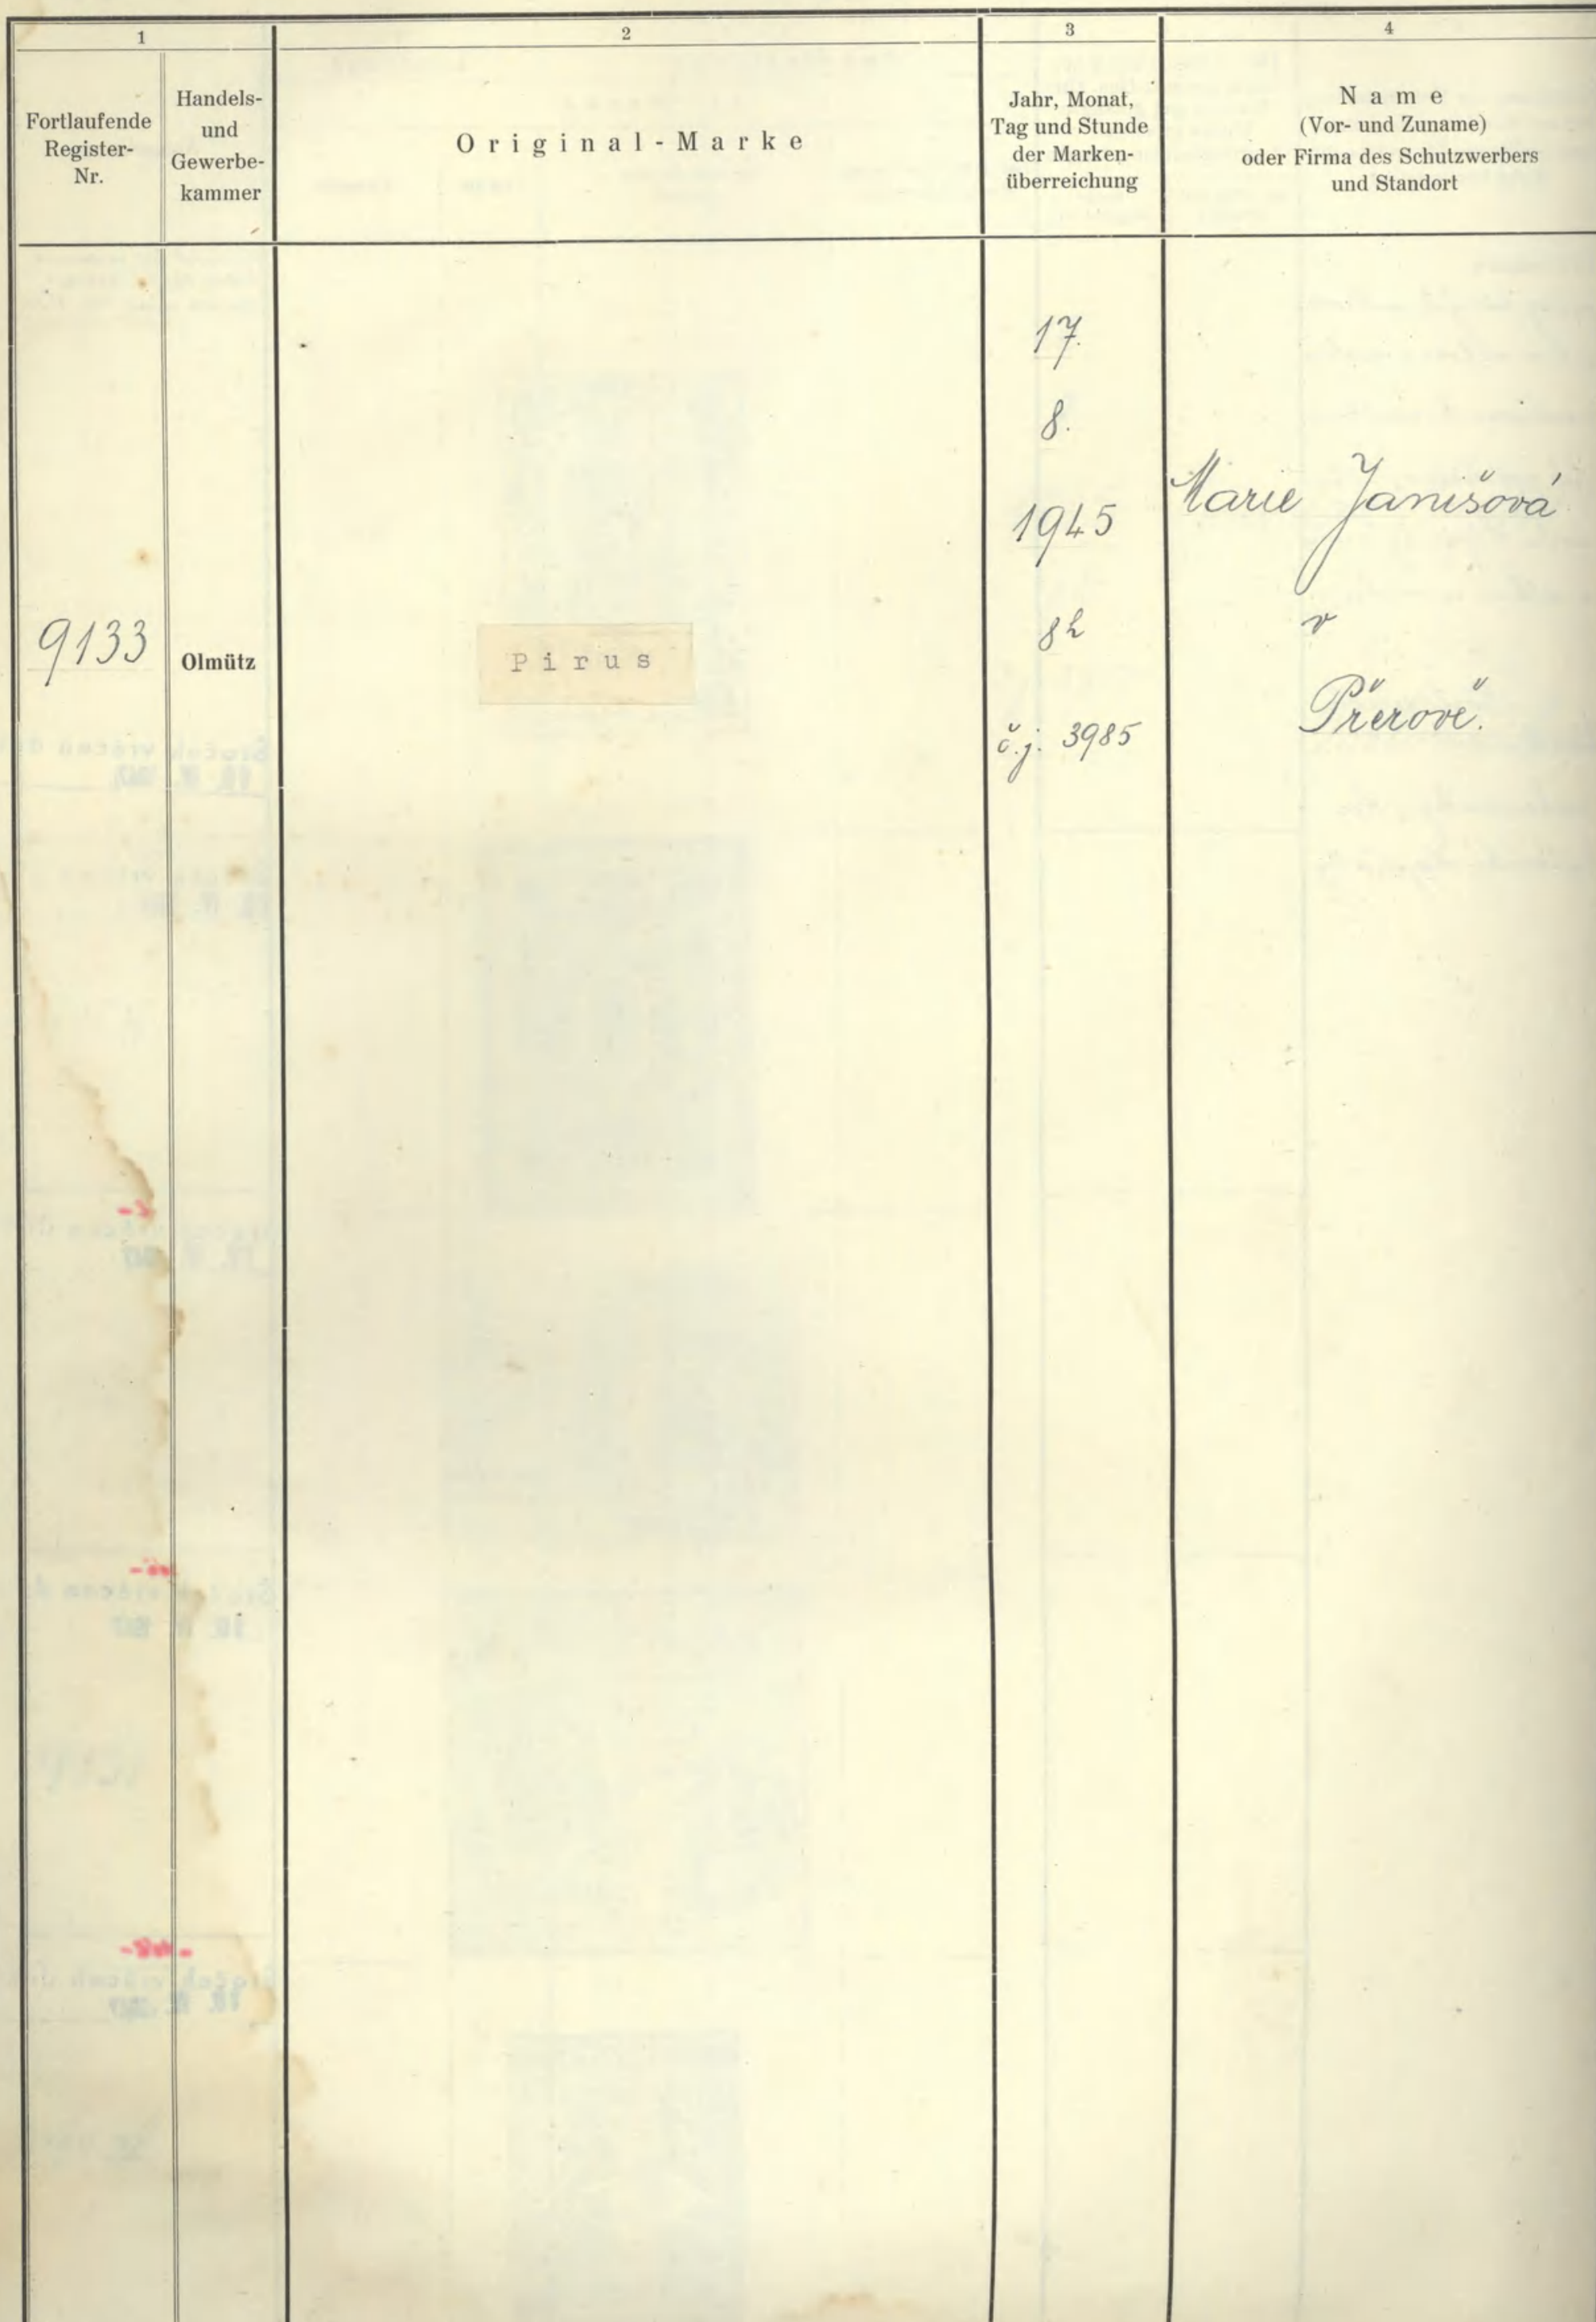 1
2
3
4
Fortlaufende
Register-
Nr.
Handels-
und
Gewerbe-
kammer
Original-Marke
Jahr, Monat,
Tag und Stunde
der Marken-
überreichung
Name
(Vor- und Zuname)
oder Firma des Schutzwerbers
und Standort
9133
Olmütz
Pirus
17.
8.
1945
8h
č.j. 3985
Marie Janišová
v
Přerově.